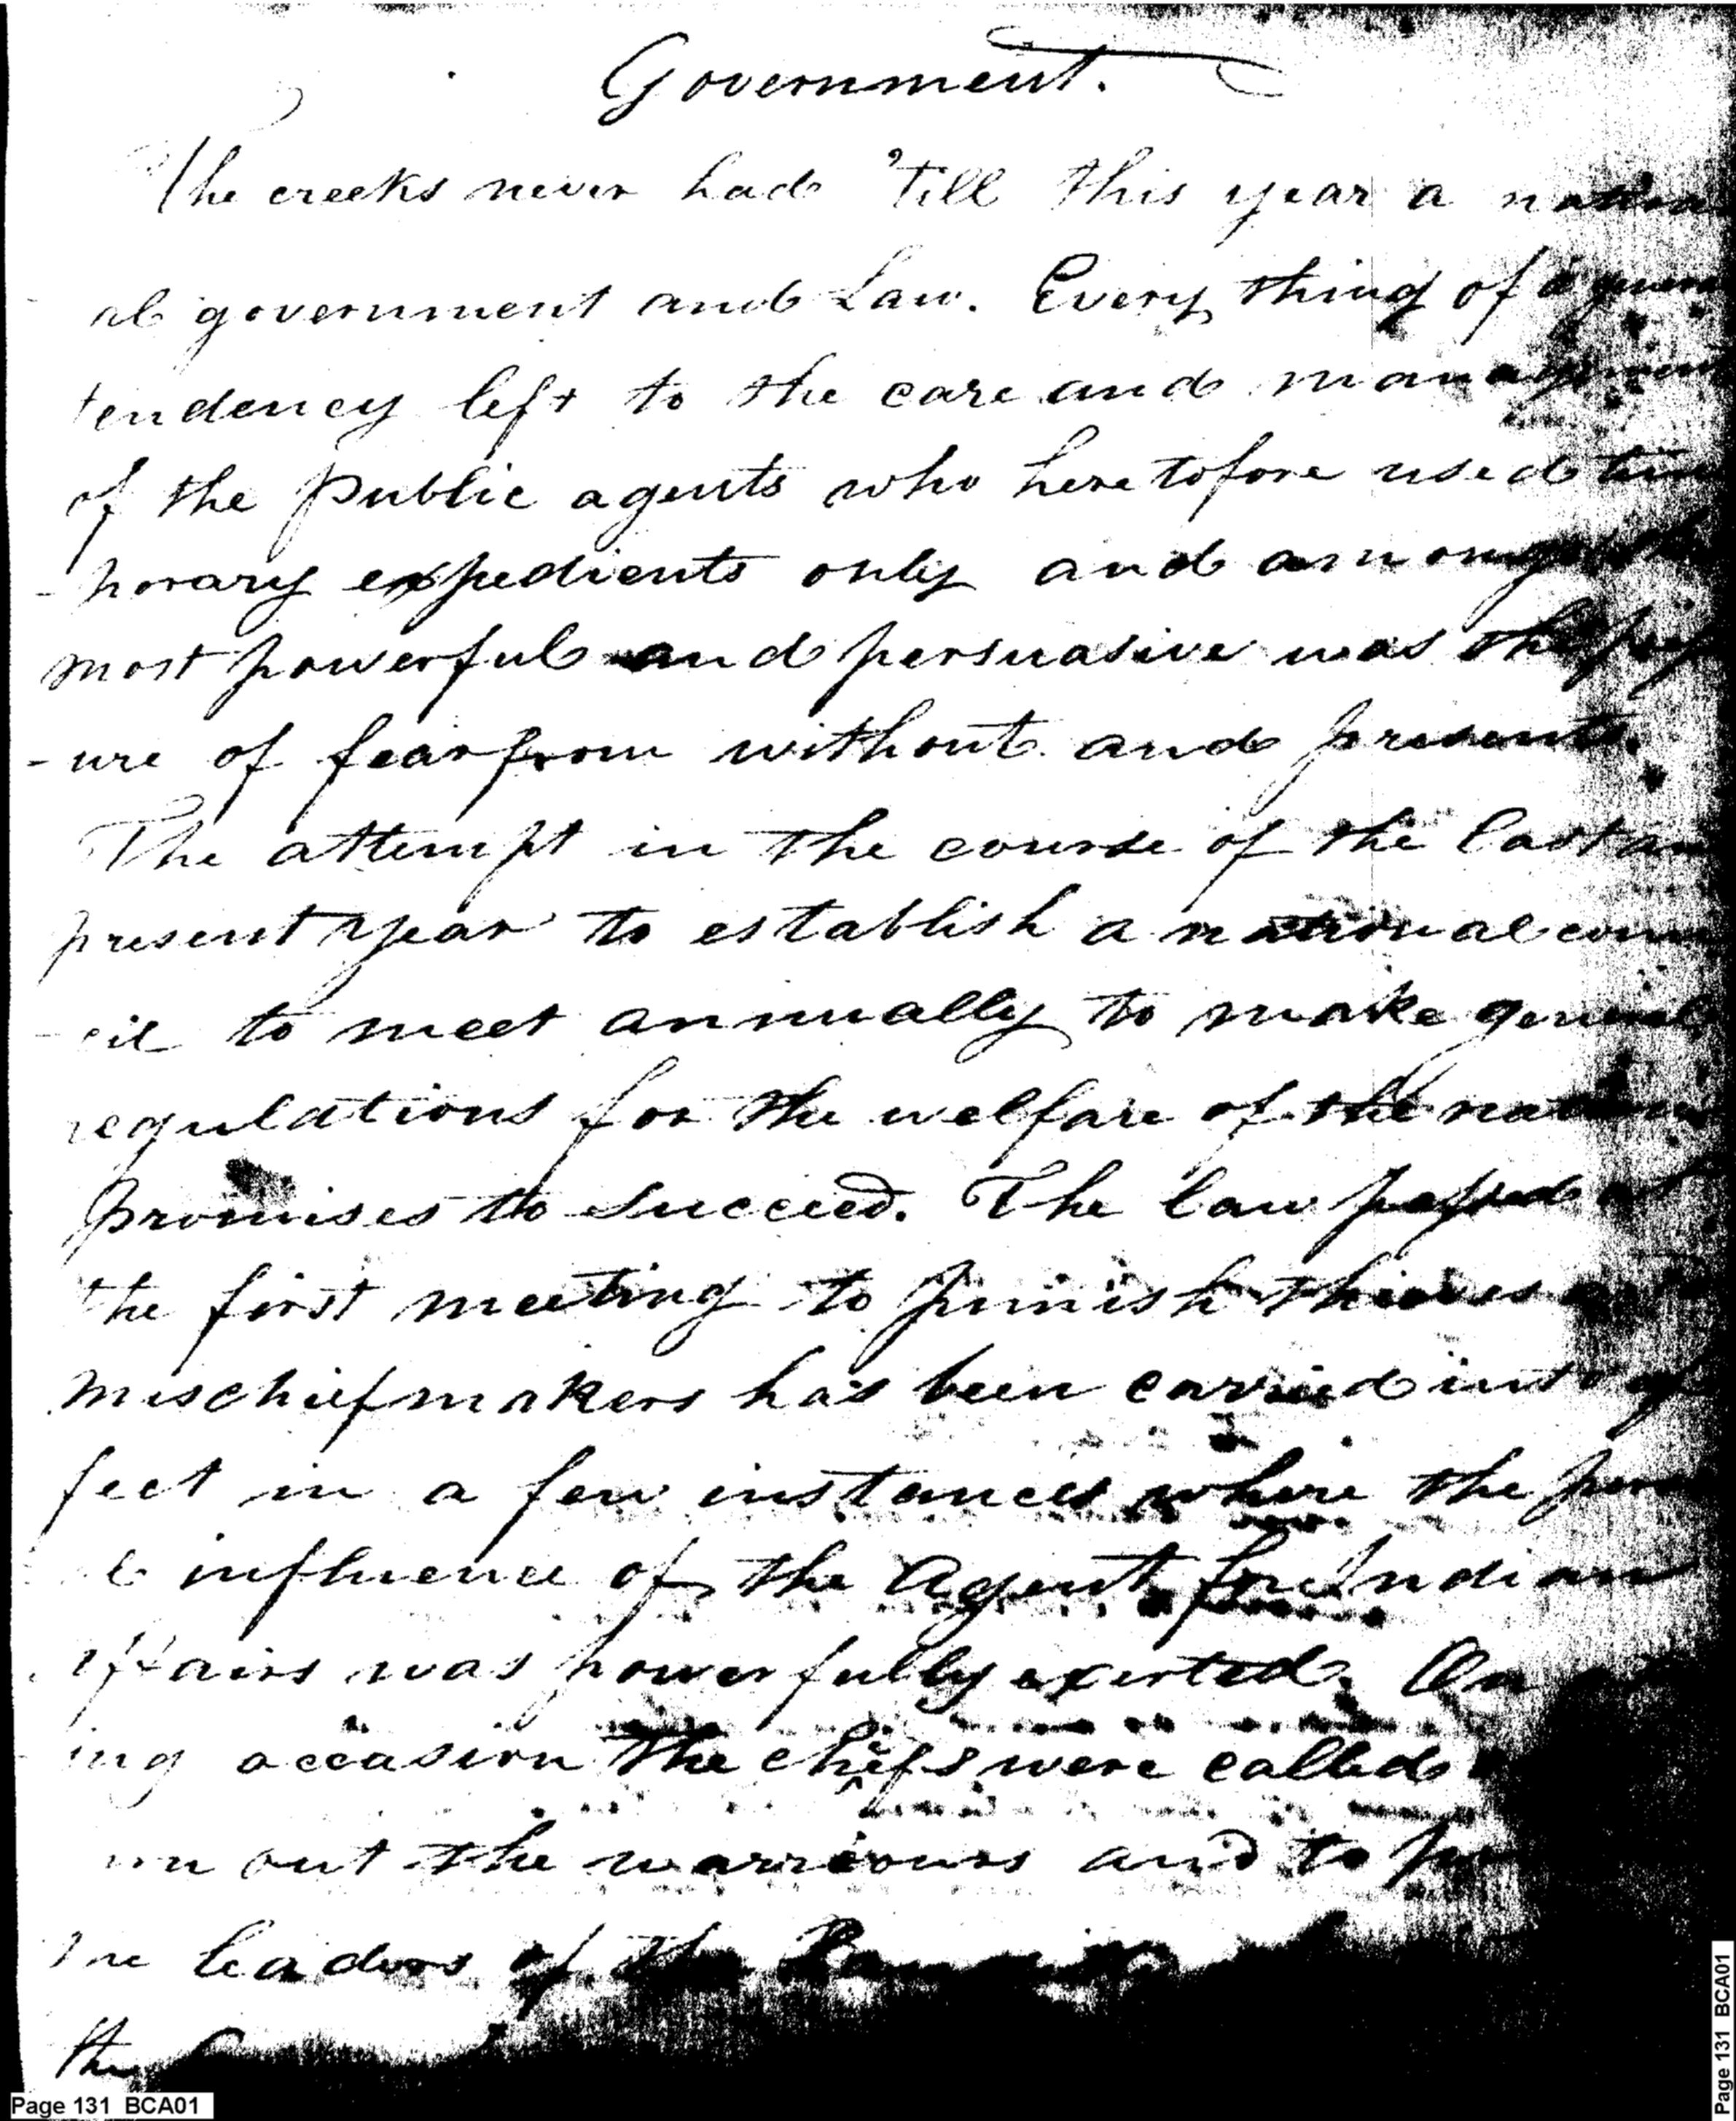 Government.
The creeks never had 'till this year a nation
al government and Law. Every thing of a general
tendency left to the care and management
of the public agents who heretofore used tem
-porary expedients only and amongst the
most powerful and persuasive was the press
-ure of fear from without and presents.
The attempt in the course of the last and
present year to establish a national coun
-cil to meet annually to make general
regulations for the welfare of the nation
promises to succeed. The law passed at
the first meeting to punish thieves and
mischief makers has been carried into ef
fect in a few instances where the
influence of the Agent for Indian
affairs was powerfully exerted. On
ing occasion the chiefs were called
out the warriours and to
the leaders of the
the
Page 131 BCA01
Page 131 BCA01